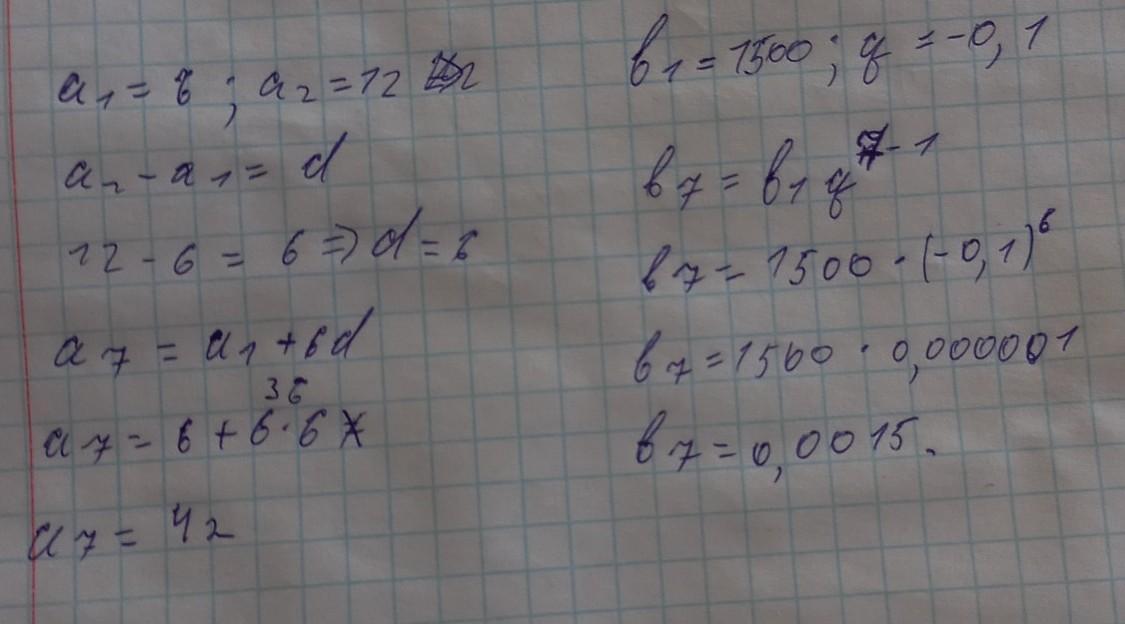 a₁ = 6 ; a₂ = 12
a₂ - a₁ = d
12 - 6 = 6 ⇒ d = 6
a₇ = a₁ + 6d
36
a₇ = 6 + 6 · 6
a₇ = 42
b₁ = 1500 ; q = -0,1
b₇ = b₁ q⁷⁻¹
b₇ = 1500 · (-0,1)⁶
b₇ = 1500 · 0,000001
b₇ = 0,0015.